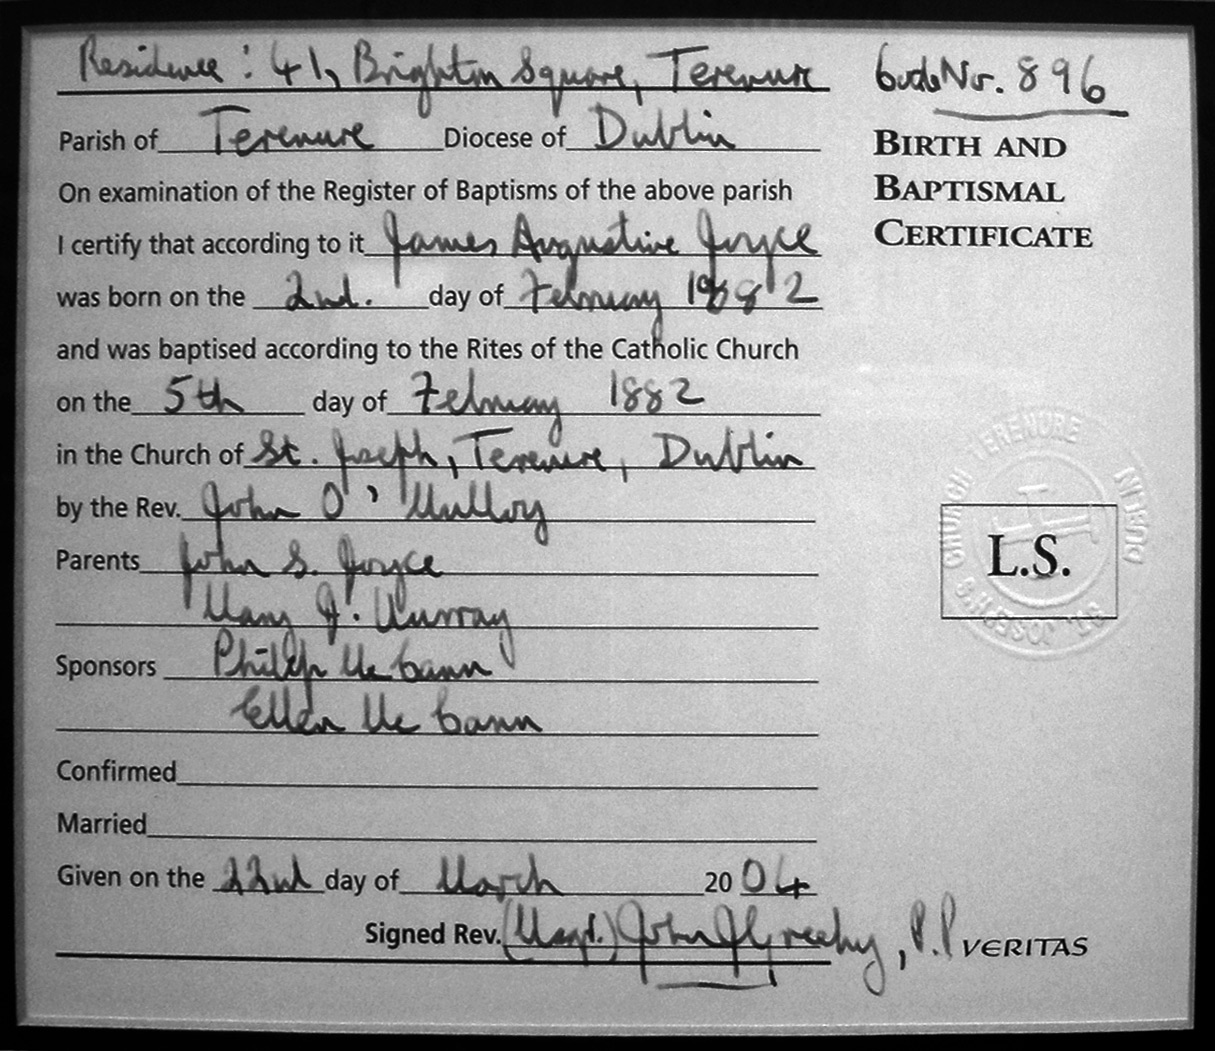 Residence: 41, Brighton Square, Terenure
Code No. 896
BIRTH AND
BAPTISMAL
CERTIFICATE
Parish of Terenure Diocese of Dublin
On examination of the Register of Baptisms of the above parish
I certify that according to it James Augustine Joyce
was born on the 2nd. day of February 1882
and was baptised according to the Rites of the Catholic Church
on the 5th day of February 1882
in the Church of St. Joseph, Terenure, Dublin
by the Rev. John O' Mulloy
Parents John S. Joyce
Mary J. Murray
Sponsors Philip Mc Cann
Ellen Mc Cann
Confirmed
Married
Given on the 22nd day of March 2004
Signed Rev. John J Greehy, P.P
VERITAS
L.S.
ST. JOSEPH'S CHURCH TERENURE DUBLIN